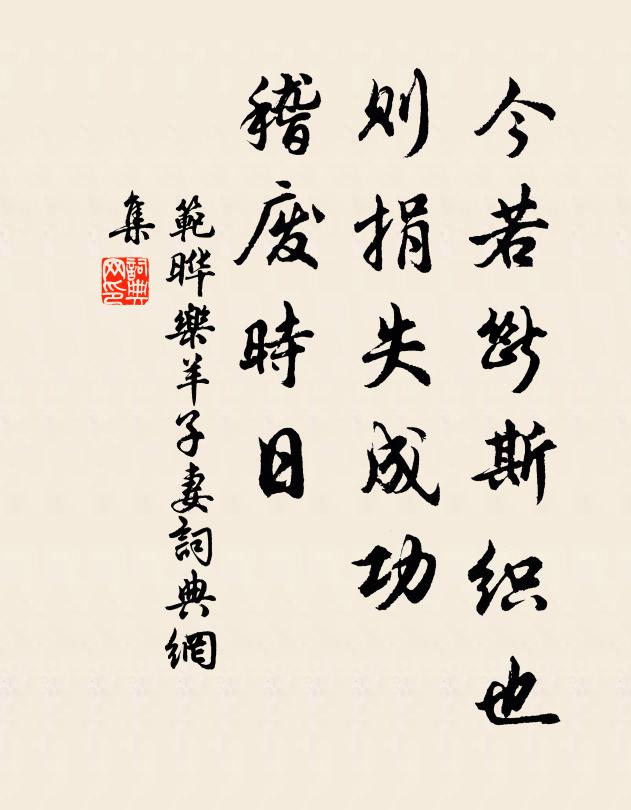 今若斷斯织也
则捐失成功
稽废時日
範晔樂羊子妻詞典網
集
詞典网印